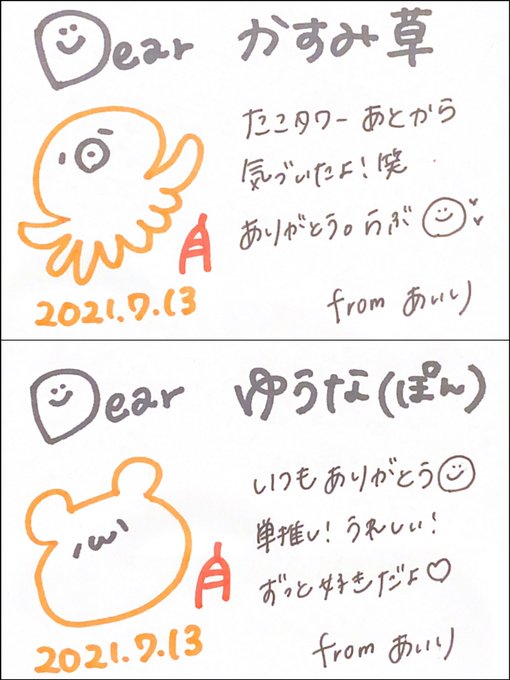 Dear かすみ草
たこタワー あとから
気づいたよ!笑
ありがとう。らぶ
2021.7.13
from あいり
Dear ゆうな(ぽん)
いつもありがとう
単推し!うれしい!
ずっと好きだよ♡
2021.7.13
from あいり